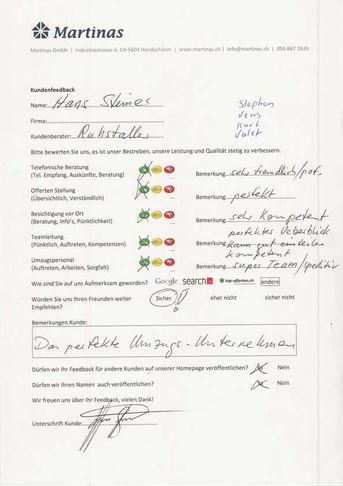 Martinas
Martinas GmbH | Industriestrasse 6, CH-5604 Hendschiken | www.martinas.ch | info@martinas.ch | 056 667 1626
Kundenfeedback
Name: Hans Steiner
Stephan
Firma:
Kurt
Kundenberater: Ruhstaller
Valet
Bitte bewerten Sie uns, es ist unser Bestreben, unsere Leistung und Qualität stetig zu verbessern.
Telefonische Beratung
(Tel. Empfang, Auskünfte, Beratung)
Bemerkung sehr freundlich/
Offerten Stellung
(Übersichtlich, Verständlich)
Bemerkung perfekt
Besichtigung vor Ort
(Beratung, Info's, Pünktlichkeit)
Bemerkung sehr Kompetent
perfekter Ueberblick
Teamleitung
(Pünktlich, Auftreten, Kompetenzen)
Bemerkung kann gut einteilen
kompetent
Umzugspersonal
(Auftreten, Arbeiten, Sorgfalt)
Bemerkung super Team/speditiv
Wie sind Sie auf uns Aufmerksam geworden? Google search top-offerten.ch andere
Würden Sie uns Ihren Freunden weiter
Empfehlen?
Sicher eher nicht sicher nicht
Bemerkungen Kunde:
Das perfekte Umzugs-Unternehmen
Dürfen wir Ihr Feedback für andere Kunden auf unserer Homepage veröffentlichen? Ja Nein
Dürfen wir Ihren Namen auch veröffentlichen? Ja Nein
Wir freuen uns über Ihr Feedback, vielen Dank!
Unterschrift Kunde: